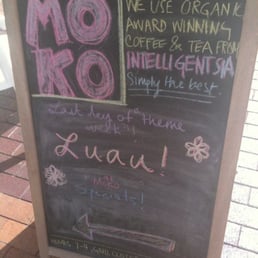 MO
KO
WE USE ORGANIC
AWARD WINNING
COFFEE & TEA FROM
INTELLIGENTSIA
Simply the best.
Last day of "theme
week"!
Luau!
Moko
Specials!